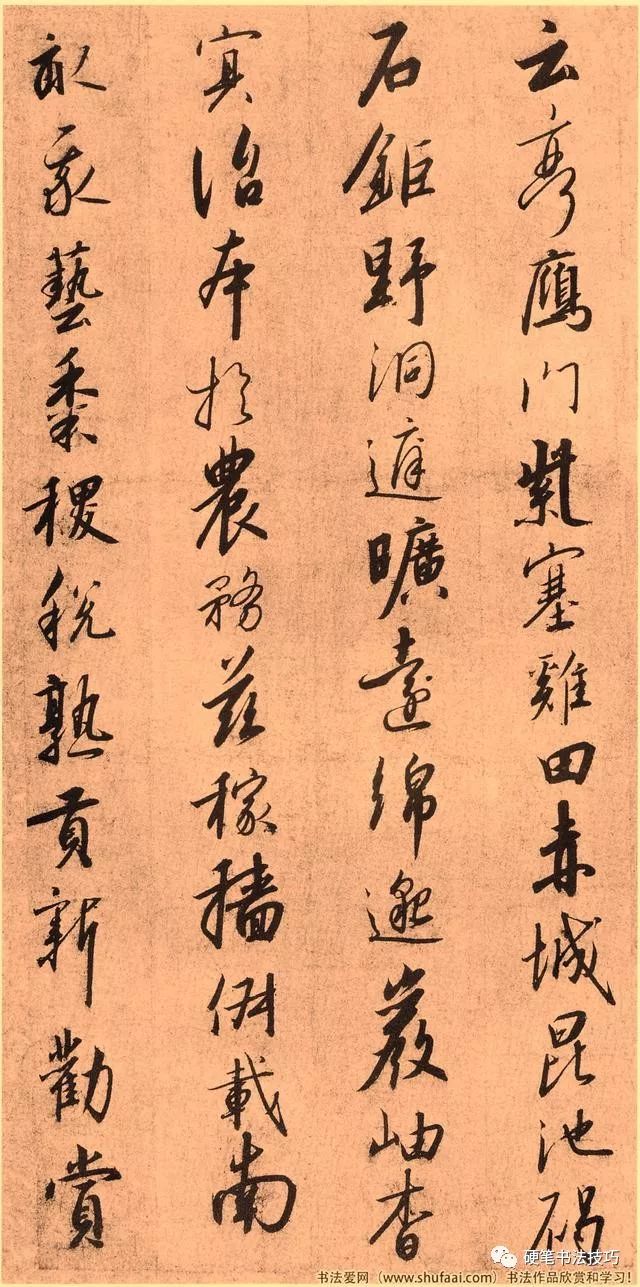 云亭鴈門紫塞雞田赤城昆池碣
石鉅野洞庭曠遠綿邈巖岫杳
冥治本於農務茲稼穡俶載南
畝我藝黍稷稅熟貢新勸賞
硬笔书法技巧
书法爱网（www.shufaai.com）书法作品欣赏和学习！